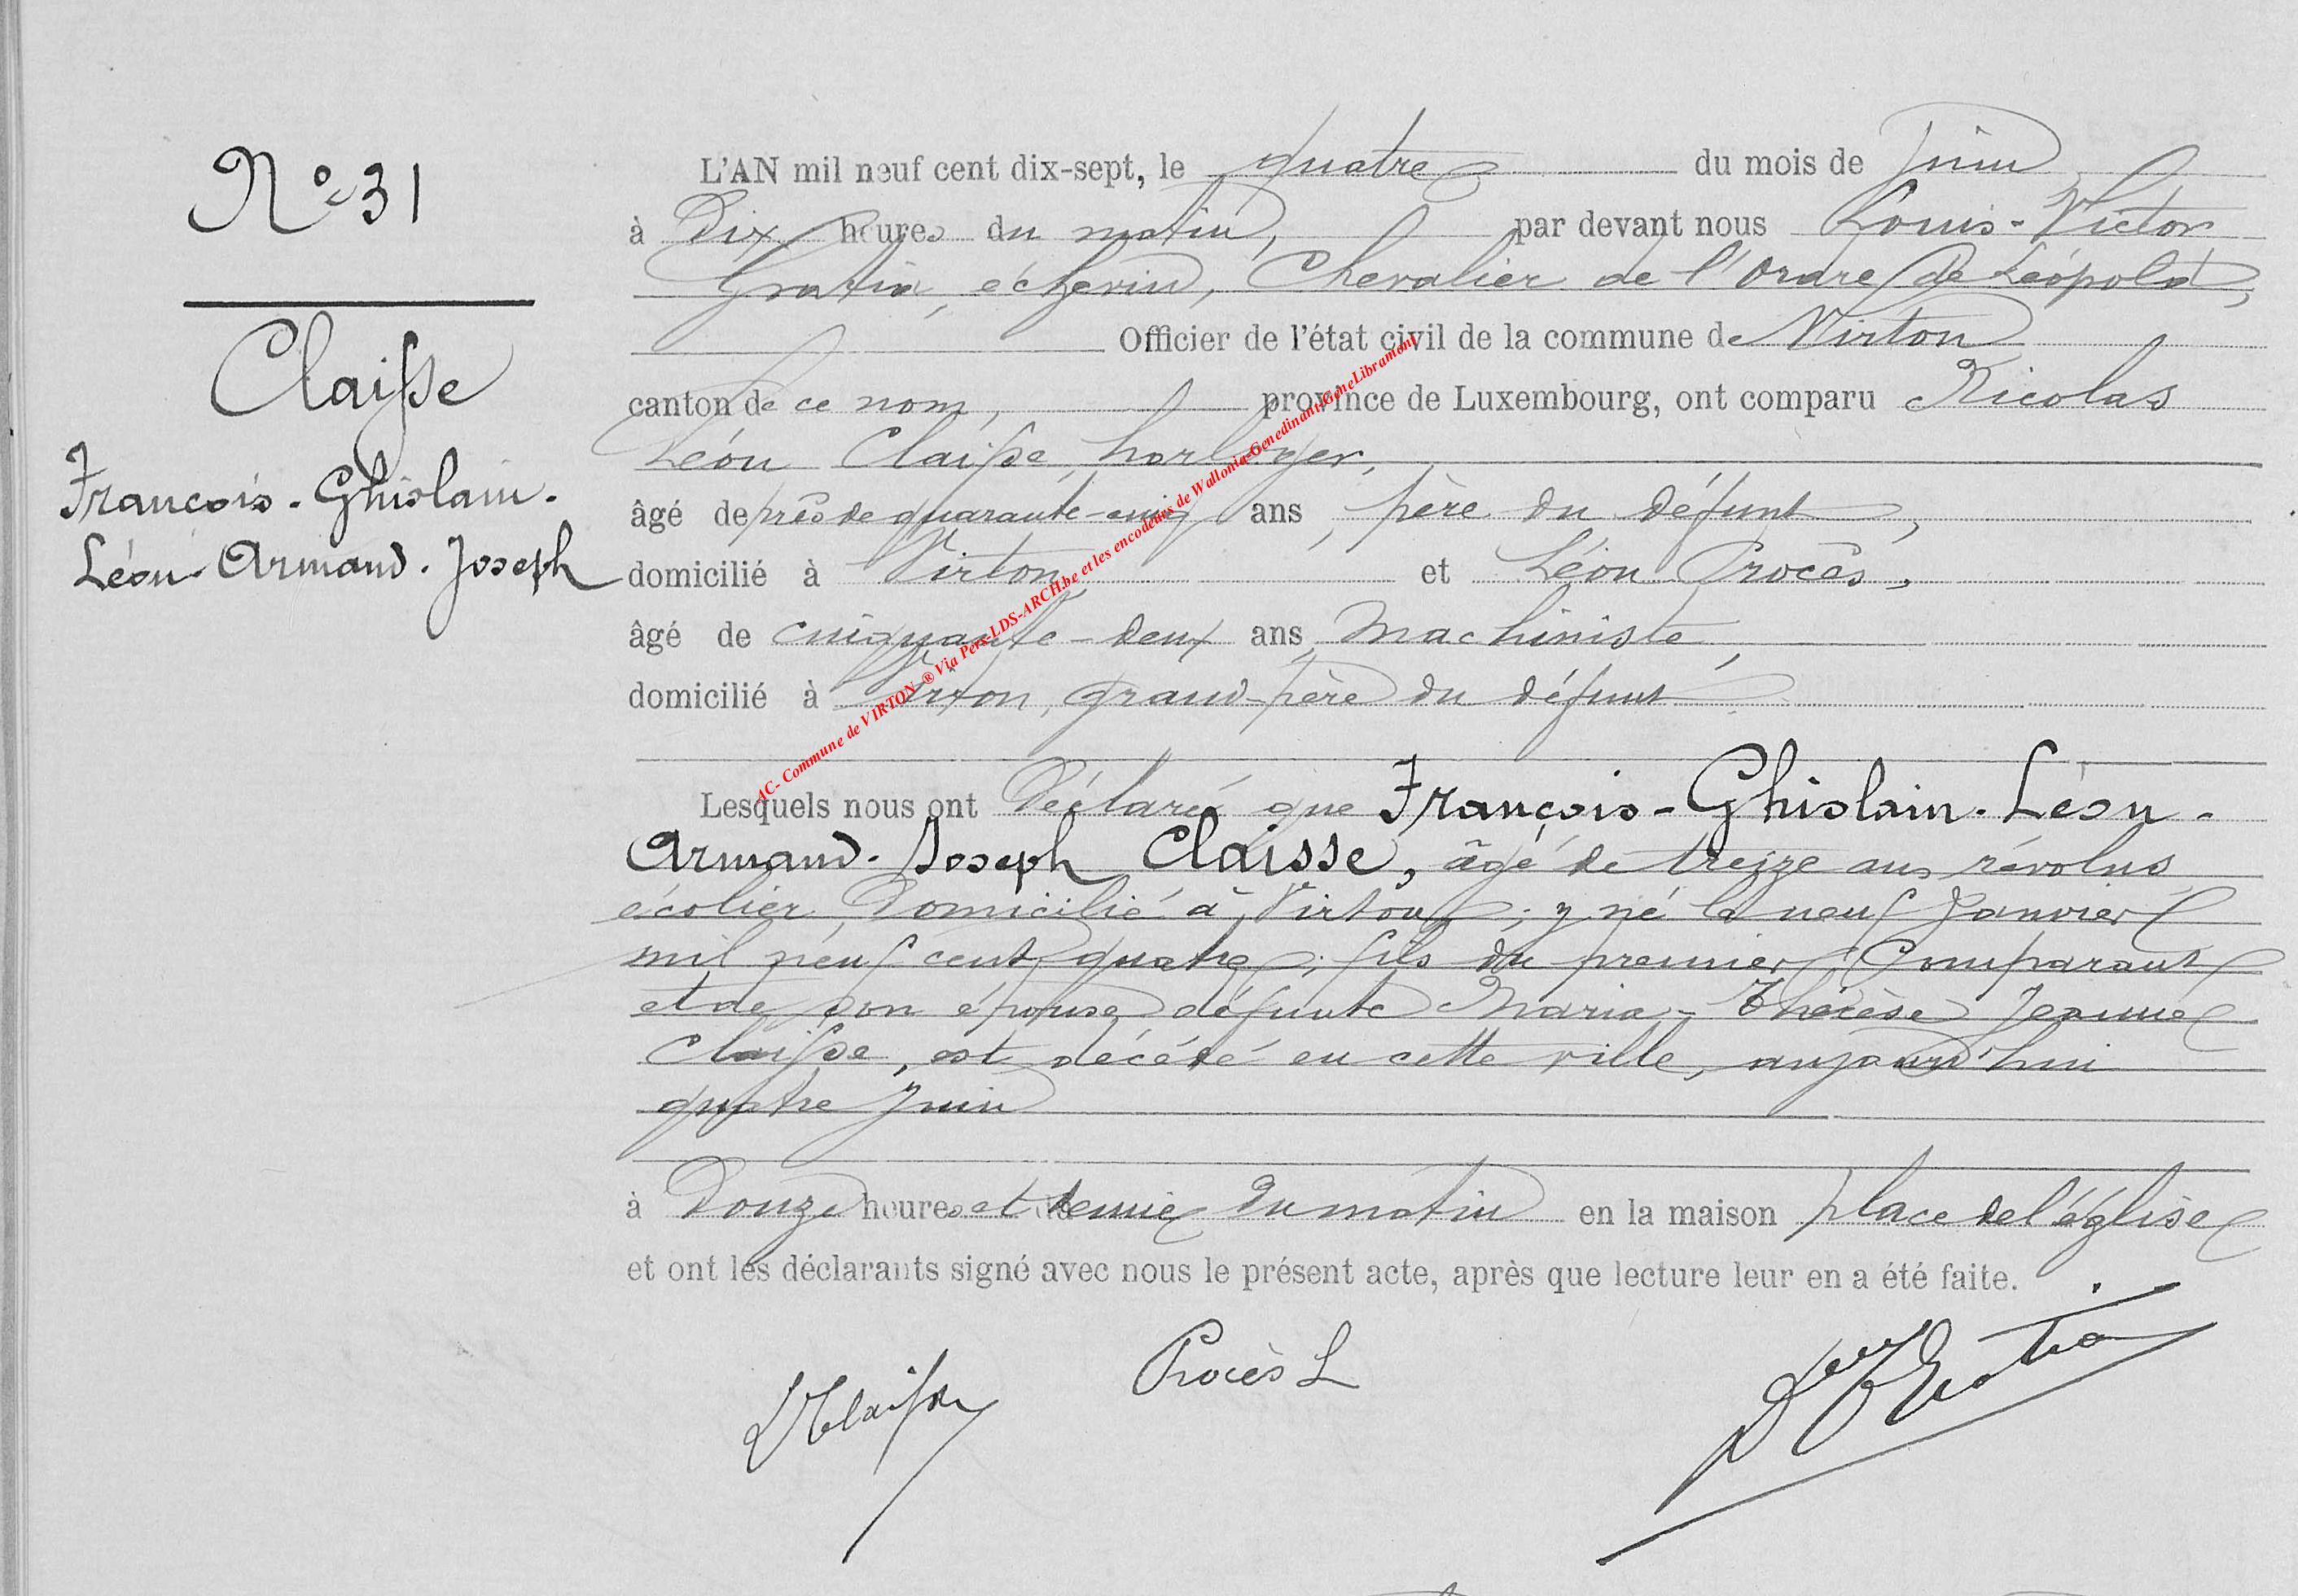 N° 31
Claisse
François-Ghislain-
Léon-Armand-Joseph
L'AN mil neuf cent dix-sept, le quatre du mois de Juin
à Dix heures du matin, par devant nous Louis-Victor
Gratia, échevin, Chevalier de l'Ordre de Léopold,
Officier de l'état civil de la commune de Virton
canton de ce nom, province de Luxembourg, ont comparu Nicolas
Léon Claisse, horloger,
âgé de près de quarante-cinq ans, père du défunt,
domicilié à Virton, et Léon Procès,
âgé de cinquante-deux ans, Machiniste,
domicilié à Virton, grand-père du défunt
Lesquels nous ont Déclaré que François-Ghislain-Léon-
Armand-Joseph Claisse, âgé de treize ans révolus
écolier, Domicilié à Virton; y né le neuf Janvier
mil neuf cent quatre; fils du premier Comparant
et de son épouse défunte Maria-Thérèse Jeanne
Claisse, est décédé en cette ville, aujourd'hui
quatre Juin
à Douze heures et demie du matin en la maison place de l'église
et ont les déclarants signé avec nous le présent acte, après que lecture leur en a été faite.
LClaisse
Procès L
AC- Commune de VIRTON ® Via Pers-LDS-ARCH.be et les encodeurs de Wallonia-Genedinant-GeneLibramont